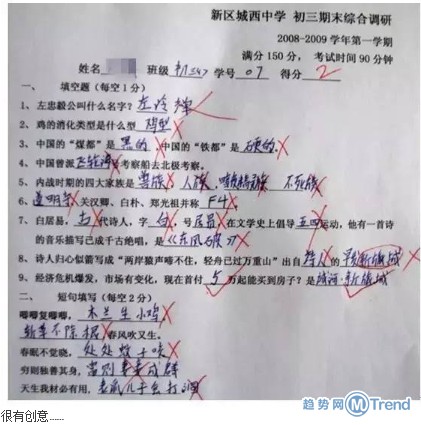 新区城西中学 初三期末综合调研
2008-2009学年第一学期
满分150分，考试时间90分钟
姓名 班级 初三 学号 07 得分 2
一、 填空题（每空1分）
1、左忠毅公叫什么名字？左冷禅
2、鸡的消化类型是什么型 阴型
3、中国的“煤都”是 黑的，中国的“铁都”是 硬的。
4、中国曾派 飞轮海 考察船去北极考察。
5、内战时期的四大家族是 兽族、人族、暗夜精灵族 不死族
6、道明寺 关汉卿、白朴、郑光祖并称 F4。
7、白居易，古 代诗人，字 号 居易 在文学史上倡导 五四 运动，他有一首诗
的音乐描写已成千古绝唱，是《东风破》
8、诗人归心似箭写成“两岸猿声啼不住，轻舟已过万重山”出自 诗人 的
9、经济危机爆发，市场有变化，现在首付 5 万起能买到房子？是
二、 短句填写（每空2分）
唧唧复唧唧，木兰生小鸡
斩草不除根 春风吹又生。
春眠不觉晓，处处蚊子咬
穷则独善其身，富则妻妾成群
天生我材必有用，老鼠儿子会打洞
趋势网 M Trend
很有创意......